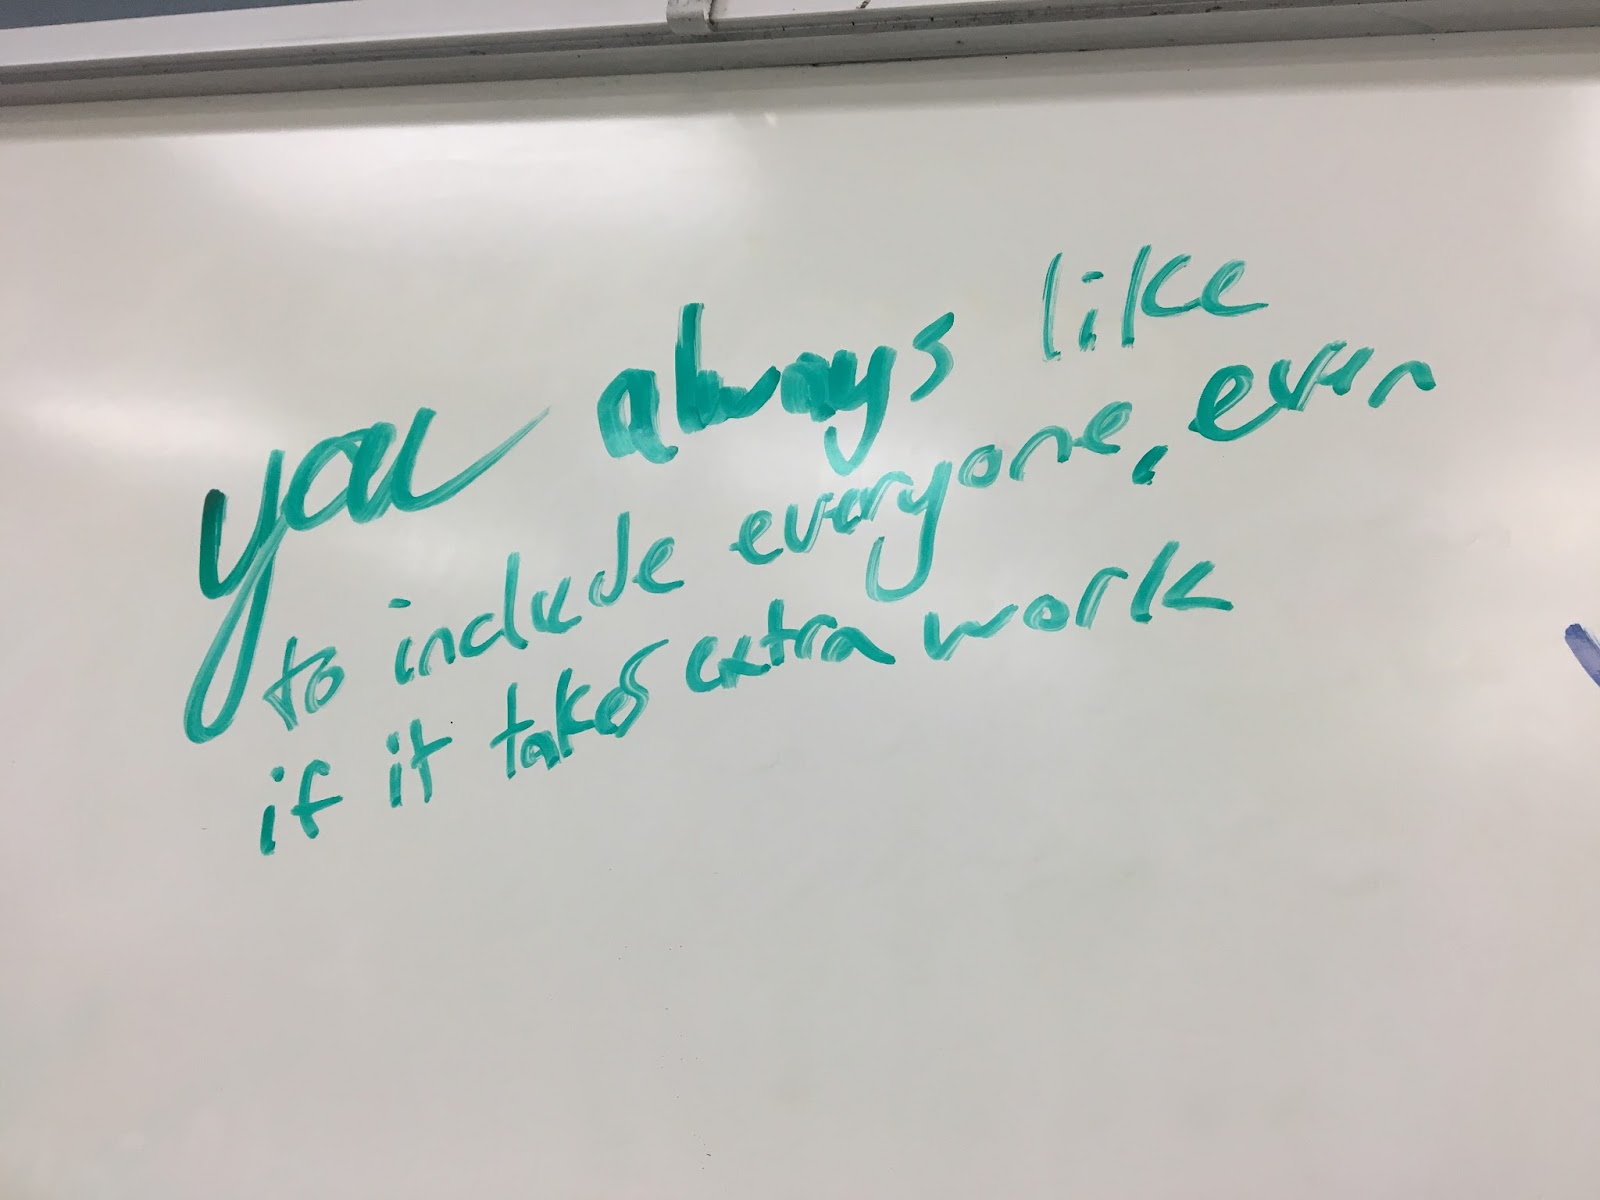 you always like
to include everyone, even
if it takes extra work